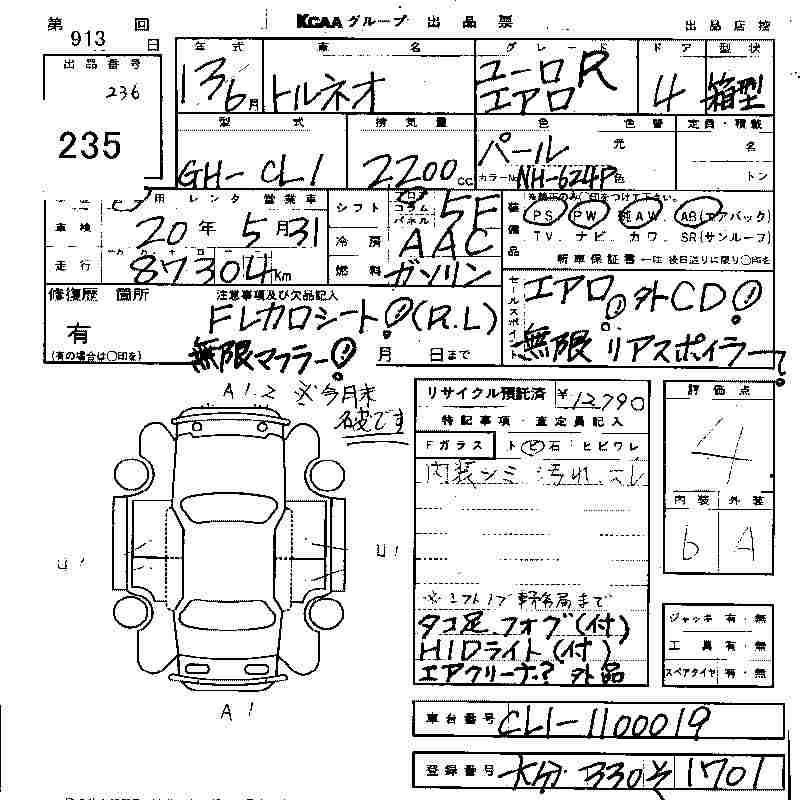 第 913 回 日
KCAAグループ 出品票
出品店控
出品番号
236
235
年式 車名 グレード ドア 型状
13 6月 トルネオ ユーロR エアロ 4 箱型
型式 排気量 色 色替 定員・積載
GH- CL1 2200cc パール 元色 名
カラーNo NH-624P トン
レンタ 営業車
車検 20年5月31
走行 87304Km
シフト コラム パネル 5F
冷房 AAC
燃料 ガソリン
装備品 ※純正のみ○印をつけて下さい。
PS PW AW AB(エアバック)
TV ナビ カワ SR(サンルーフ)
新車保証書一は後日送りに限り○印を
修復歴 箇所
有
(有の場合は○印を)
注意事項及び欠品記入
FLカロシート!(R.L)
無限マフラー! 月 日まで
セールスポイント
エアロ! 外CD!
無限 リアスポイラー
A1.2 ※今月末
A1
U1
U1
リサイクル預託済 ¥12790
特記事項・査定員記入
Fガラス トビ石・ヒビワレ
内装シミ 汚れ スレ
タコ足 フォグ(付)
HIDライト(付)
エアクリーナ? 外品
評価点
4
内装 外装
b A
ジャッキ 有・無
工具 有・無
スペアタイヤ 有・無
車台番号 CL1-1100019
登録番号 大分 330 そ 1701